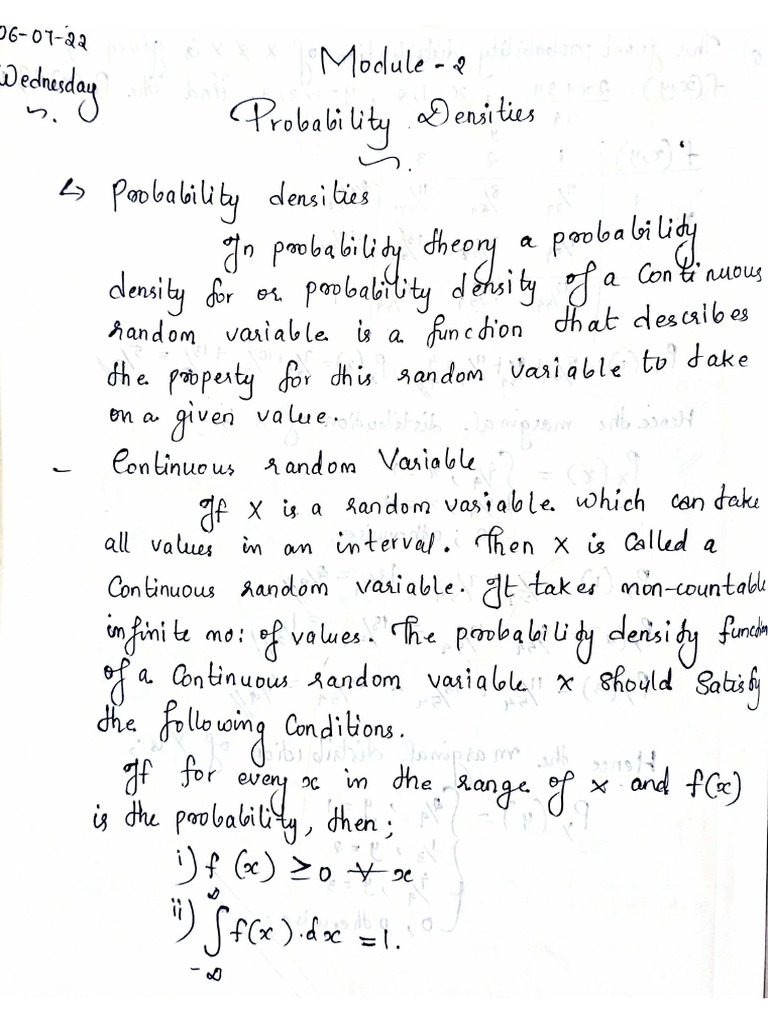 06-07-22
Wednesday
Module - 2
Probability Densities
↳ Probability densities
In probability theory a probability
density for or probability density of a continuous
random variable is a function that describes
the property for this random variable to take
on a given value.
- Continuous random Variable
If X is a random variable which can take
all values in an interval. Then X is called a
Continuous random variable. It takes non-countable
infinite no: of values. The probability density function
of a continuous random variable x should satisfy
the following conditions.
If for every x in the range of x and f(x)
is the probability, then;
i) f(x) ≥ 0 ∀ x
ii) ∫_{-∞}^{∞} f(x).dx = 1.